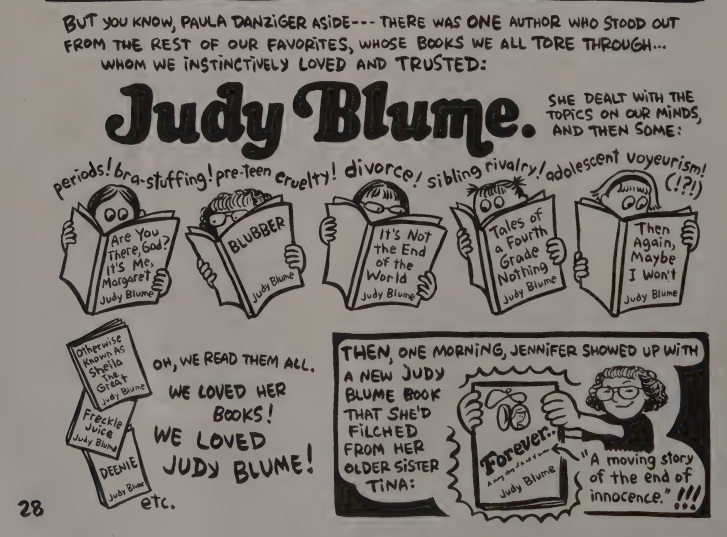 BUT YOU KNOW, PAULA DANZIGER ASIDE--- THERE WAS ONE AUTHOR WHO STOOD OUT
FROM THE REST OF OUR FAVORITES, WHOSE BOOKS WE ALL TORE THROUGH...
WHOM WE INSTINCTIVELY LOVED AND TRUSTED:
Judy Blume.
SHE DEALT WITH THE
TOPICS ON OUR MINDS,
AND THEN SOME:
periods! bra-stuffing! pre-teen cruelty! divorce! sibling rivalry! adolescent voyeurism!
(!?!)
Are You
There, God?
It's Me,
Margaret
Judy Blume
BLUBBER
Judy Blume
It's Not
the End
of the
World
Judy Blume
Tales of
a Fourth
Grade
Nothing
Judy Blume
Then
Again,
Maybe
I Won't
Judy Blume
Otherwise
Known As
Sheila
The
Great
Judy Blume
Freckle
Juice
Judy Blume
DEENIE
Judy Blume
etc.
OH, WE READ THEM ALL.
WE LOVED HER
BOOKS!
WE LOVED
JUDY BLUME!
THEN, ONE MORNING, JENNIFER SHOWED UP WITH
A NEW JUDY
BLUME BOOK
THAT SHE'D
FILCHED
FROM HER
OLDER SISTER
TINA:
Forever...
Judy Blume
"A moving story
of the end of
innocence." !!!
28